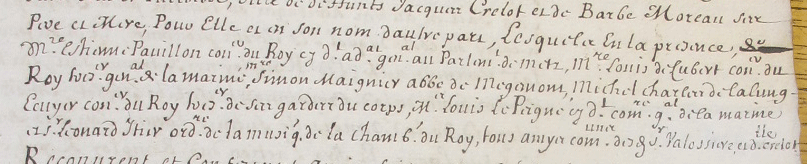 fille de deffunts Jacques Crelot et de Barbe Moreau ses
Pere et Mere, Pour Elle et en son nom d'autre part, Lesquels En la presence, de
Mre. Estienne Pavillon conr. du Roy cy dt. adat. genal. au Parlemt. de metz, Mre. Louis de Lubert conr. du
Roy tresr. genal. de la marine, Mre Simon Maignier abbé de Megemont, Michel charles de la lung-
Ecuyer conr. du Roy tresr. des gardes du corps, Mr. Louis Le Peigne cy dt. comre. gal. de la marine
et sr. Leonard Itier ordre. de la musiq. de la chambr. du Roy, tous amys com.uns de s. Valossiere et d.lle crelot
Reconurent et Confesse